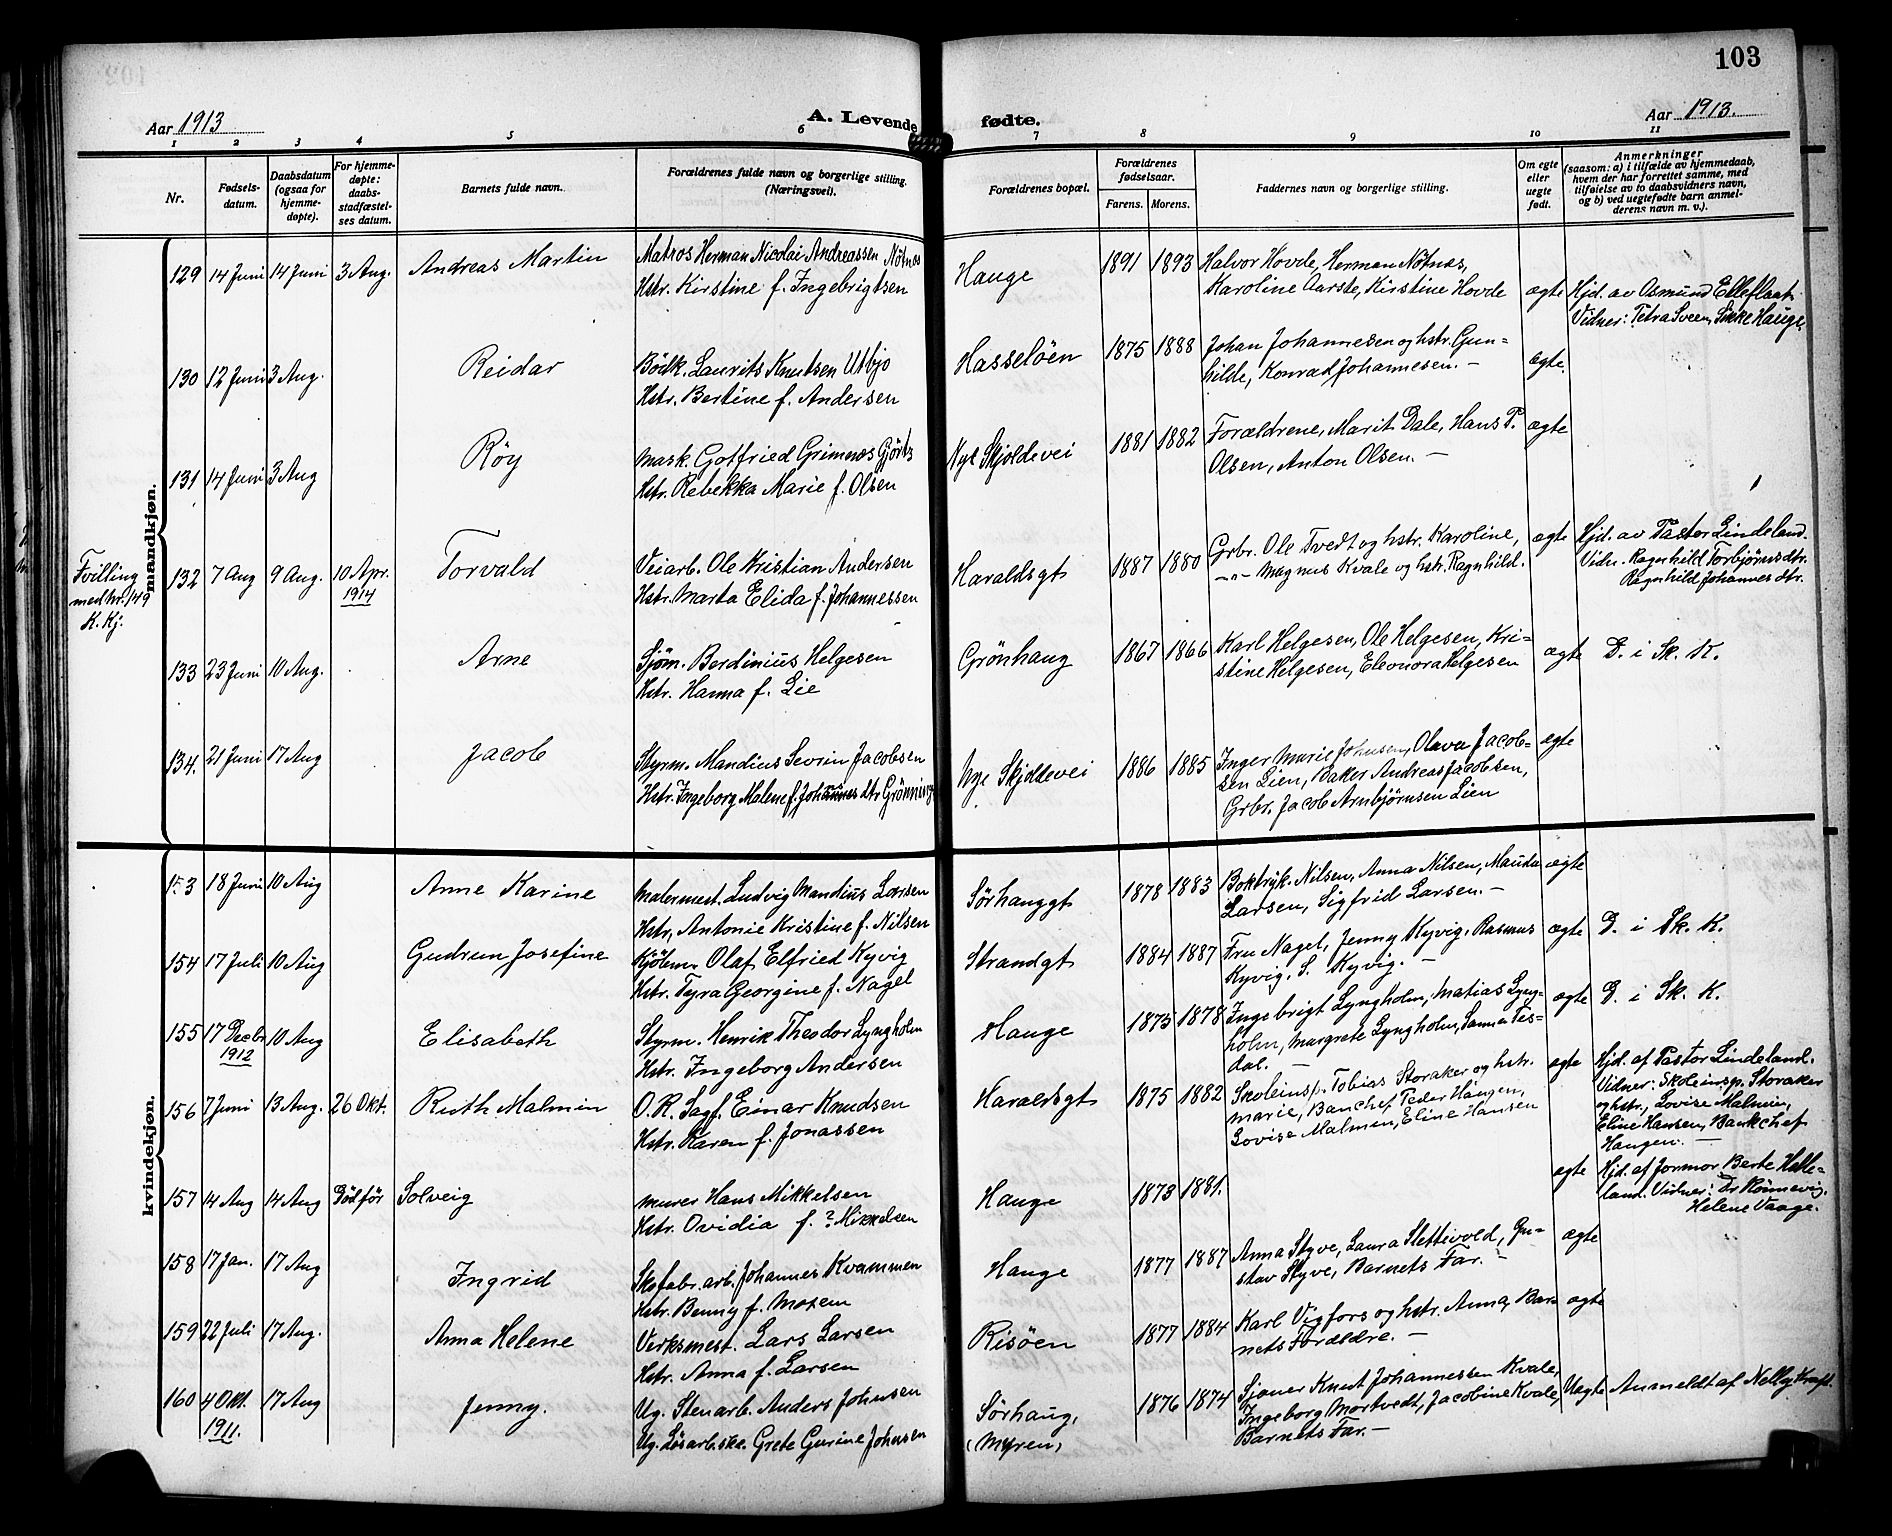 103
Aar 1913
A. Levende fødte.
Aar 1913.
1 2 3 4 5 6 7 8 9 10 11
Nr.
Fødsels-
datum.
Daabsdatum
(ogsaa for
hjemme-
døpte).
For hjemme-
døpte:
daabs-
stadfæstel-
ses datum.
Barnets fulde navn.
Forældrenes fulde navn og borgerlige stilling.
(Næringsvei).
Forældrenes bopæl.
Forældrenes
fødselsaar.
Farens. Morens.
Faddernes navn og borgerlige stilling.
Om egte
eller
uegte
født.
Anmerkninger
(saasom: a) i tilfælde av hjemmedaab,
hvem der har forrettet samme, med
tilføielse av to daabsvidners navn,
og b) ved uegtefødt barn anmel-
derens navn m. v.).
mandkjøn.
129 14 Juni 14 Juni 3 Aug. Andreas Martin
Matros Herman Nicolai Andreassen Nötnes
Hstr. Kirstine f. Ingebrigtsen
Hauge 1891 1893
Halvor Hovde, Herman Nötnes,
Karoline Aarste, Kirstine Hovde
ægte
Hjd. av Osmund Elleflaat
Vidner: Petra Sveen, Sikke Hauge.
130 12 Juni 3 Aug. Reidar
Bödk. Laurits Knutsen Utbjo
Hstr. Bertine f. Andersen
Hasselöen 1875 1888
Johan Johannesen og hstr. Gun-
hilde, Konrad Johannesen. —
ægte.
131 14 Juni 3 Aug Röy
Mask. Gotfried Grimnes Gjörtz
Hstr. Rebekka Marie f. Olsen
Nye Skjoldevei 1881 1882
Forældrene, Marit Dale, Hans P.
Olsen, Anton Olsen. —
ægte
Tvilling
med nr. 149
K. Kj.
132 7 Aug 9 Aug. 10 Apr.
1914
Torvald
Veiarb. Ole Kristian Andersen
Hstr. Marta Elida f. Johannessen
Haraldsgt 1887 1880
Grbr. Ole Tvedt og hstr. Karoline,
—"— Magnus Kvale og hstr. Ragnhild.
ægte
Hjd. av Pastor Lindeland.
Vidn. Ragnhild Torbjörnsdtr.
Ragnhild Johannesdtr.
133 23 Juni 10 Aug. Arne
Sjöm. Berdinius Helgesen
Hstr. Hanna f. Lie
Grönhaug 1867 1866
Karl Helgesen, Ole Helgesen, Kri-
stine Helgesen, Eleonora Helgesen
ægte
D. i Sk. K.
134. 21 Juni 17 Aug Jacob
Styrm. Mandius Sevrin Jacobsen
Hstr. Ingeborg Malene f. Johannesdtr Grönning
Nye Skjoldevei 1886 1885
Inger Marie Johnsen, Olava Jacob-
sen Lien, Baker Andreas Jacobsen,
Grbr. Jacob Arnbjörnsen Lien
ægte
kvindekjøn.
153 18 Juni 10 Aug Anne Karine
Malermest. Ludvig Mandius Larsen
Hstr. Antonie Kristine f. Nilsen
Sörhauggt 1878 1883
Boktryk. Nilsen, Anna Nilsen, Mauda
Larsen, Sigfrid Larsen. —
ægte
154 17 Juli 10 Aug Gudrun Josefine
Kjöbm. Olaf Elfried Kyvig
Hstr. Tyra Georgine f. Nagel
Strandgt 1884 1887
Fru Nagel, Jenny Kyvig, Rasmus
Kyvig, S. Kyvig. —
ægte
D. i Sk. K.
155 17 Decbr
1912
10 Aug Elisabeth
Styrm. Henrik Theodor Lyngholm
Hstr. Ingeborg Andersen
Hauge 1875 1878
Ingebrigt Lyngholm, Matias Lyng-
holm, Margrete Lyngholm, Sanna Tes-
dal. —
ægte
D. i Sk. K.
156 7 Juni 13 Aug. 26 Okt. Ruth Malmin
O. R. Sagf. Einar Knudsen
Hstr. Karen f. Jonassen
Haraldsgt 1875 1882
Skoleinsp. Tobias Storaker og hstr.
Marie, Banchef Peder Haugen,
Lovise Malmin, Eline Hansen
ægte
Hjd. af Pastor Lindeland.
Vidner: Skoleinsp. Storaker
og hstr., Lovise Malmin,
Eline Hansen, Bankchef
Haugen. —
157 14 Aug 14 Aug Död för Solveig
Murer Hans Mikkelsen
Hstr. Ovidia f. ? Mikkelsen
Hauge 1873 1881.
ægte
Hjd. af Jormor Berte Helle-
land. Vidner: Dr Rönnevig.
Helene Vaage.
158 17 Jan. 17 Aug Ingrid
Skofabr.arb. Johannes Kvammen
Hstr. Benny f. Moxem
Hauge 1877 1887
Anna Styve, Laura Slettevold, Gu-
stav Styve, Barnets Far. —
ægte
159 22 Juli 17 Aug. Anna Helene
Verksmest. Lars Larsen
Hstr. Anna f. Larsen
Risöen 1877 1884
Karl Vigfors og hstr. Anna, Bar-
nets Forældre. —
ægte
160 4 Okt.
1911.
17 Aug Jenny.
Ug. Stenarb. Anders Johnsen
Ug. Løsarb.ske. Grete Gurine Johnsen
Sörhaug,
(Myren) 1876 1874
Sjauer Knut Johannessen Kvale,
Ingeborg Mortvedt, Jacobine Kvale,
Barnets Far. —
Uægte
Anmeldt af Nelly Kraft.